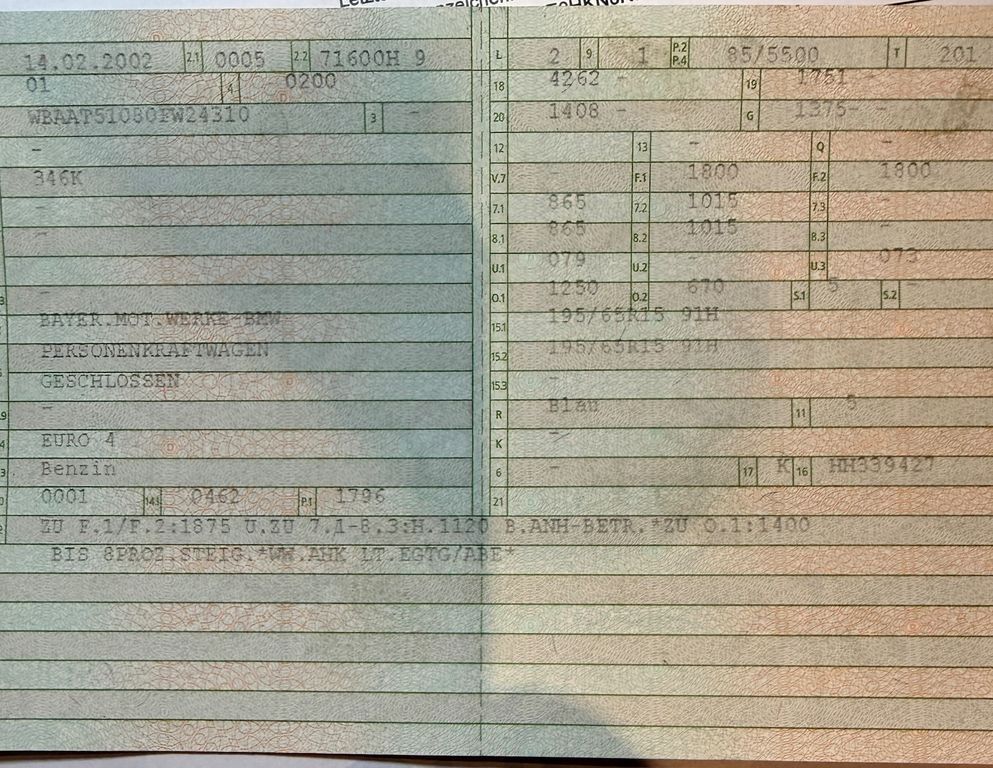 14.02.2002 2.1 0005 2.2 71600H 9 L 2 9 1 P.2 P.4 85/5500 T 201
01 4 0200 18 4262 - 19 1751 -
WBAAT51080FW24310 3 - 20 1408 - G 1375- -
- 12 13 - Q -
346K V.7 - F.1 1800 F.2 1800
- 7.1 865 7.2 1015 7.3 -
- 8.1 865 8.2 1015 8.3 -
U.1 079 U.2 - U.3 073
- O.1 1250 O.2 670 S.1 5 S.2 -
BAYER.MOT.WERKE-BMW 15.1 195/65R15 91H
PERSONENKRAFTWAGEN 15.2 195/65R15 91H
GESCHLOSSEN 15.3 -
- R Blau 11 5
EURO 4 K -
Benzin 6 - 17 K 16 HH339427
0001 14.1 0462 P.1 1796 21
ZU F.1/F.2:1875 U.ZU 7.1-8.3:H.1120 B.ANH-BETR.*ZU O.1:1400
BIS 8PROZ.STEIG.*WW.AHK LT.EGTG/ABE*